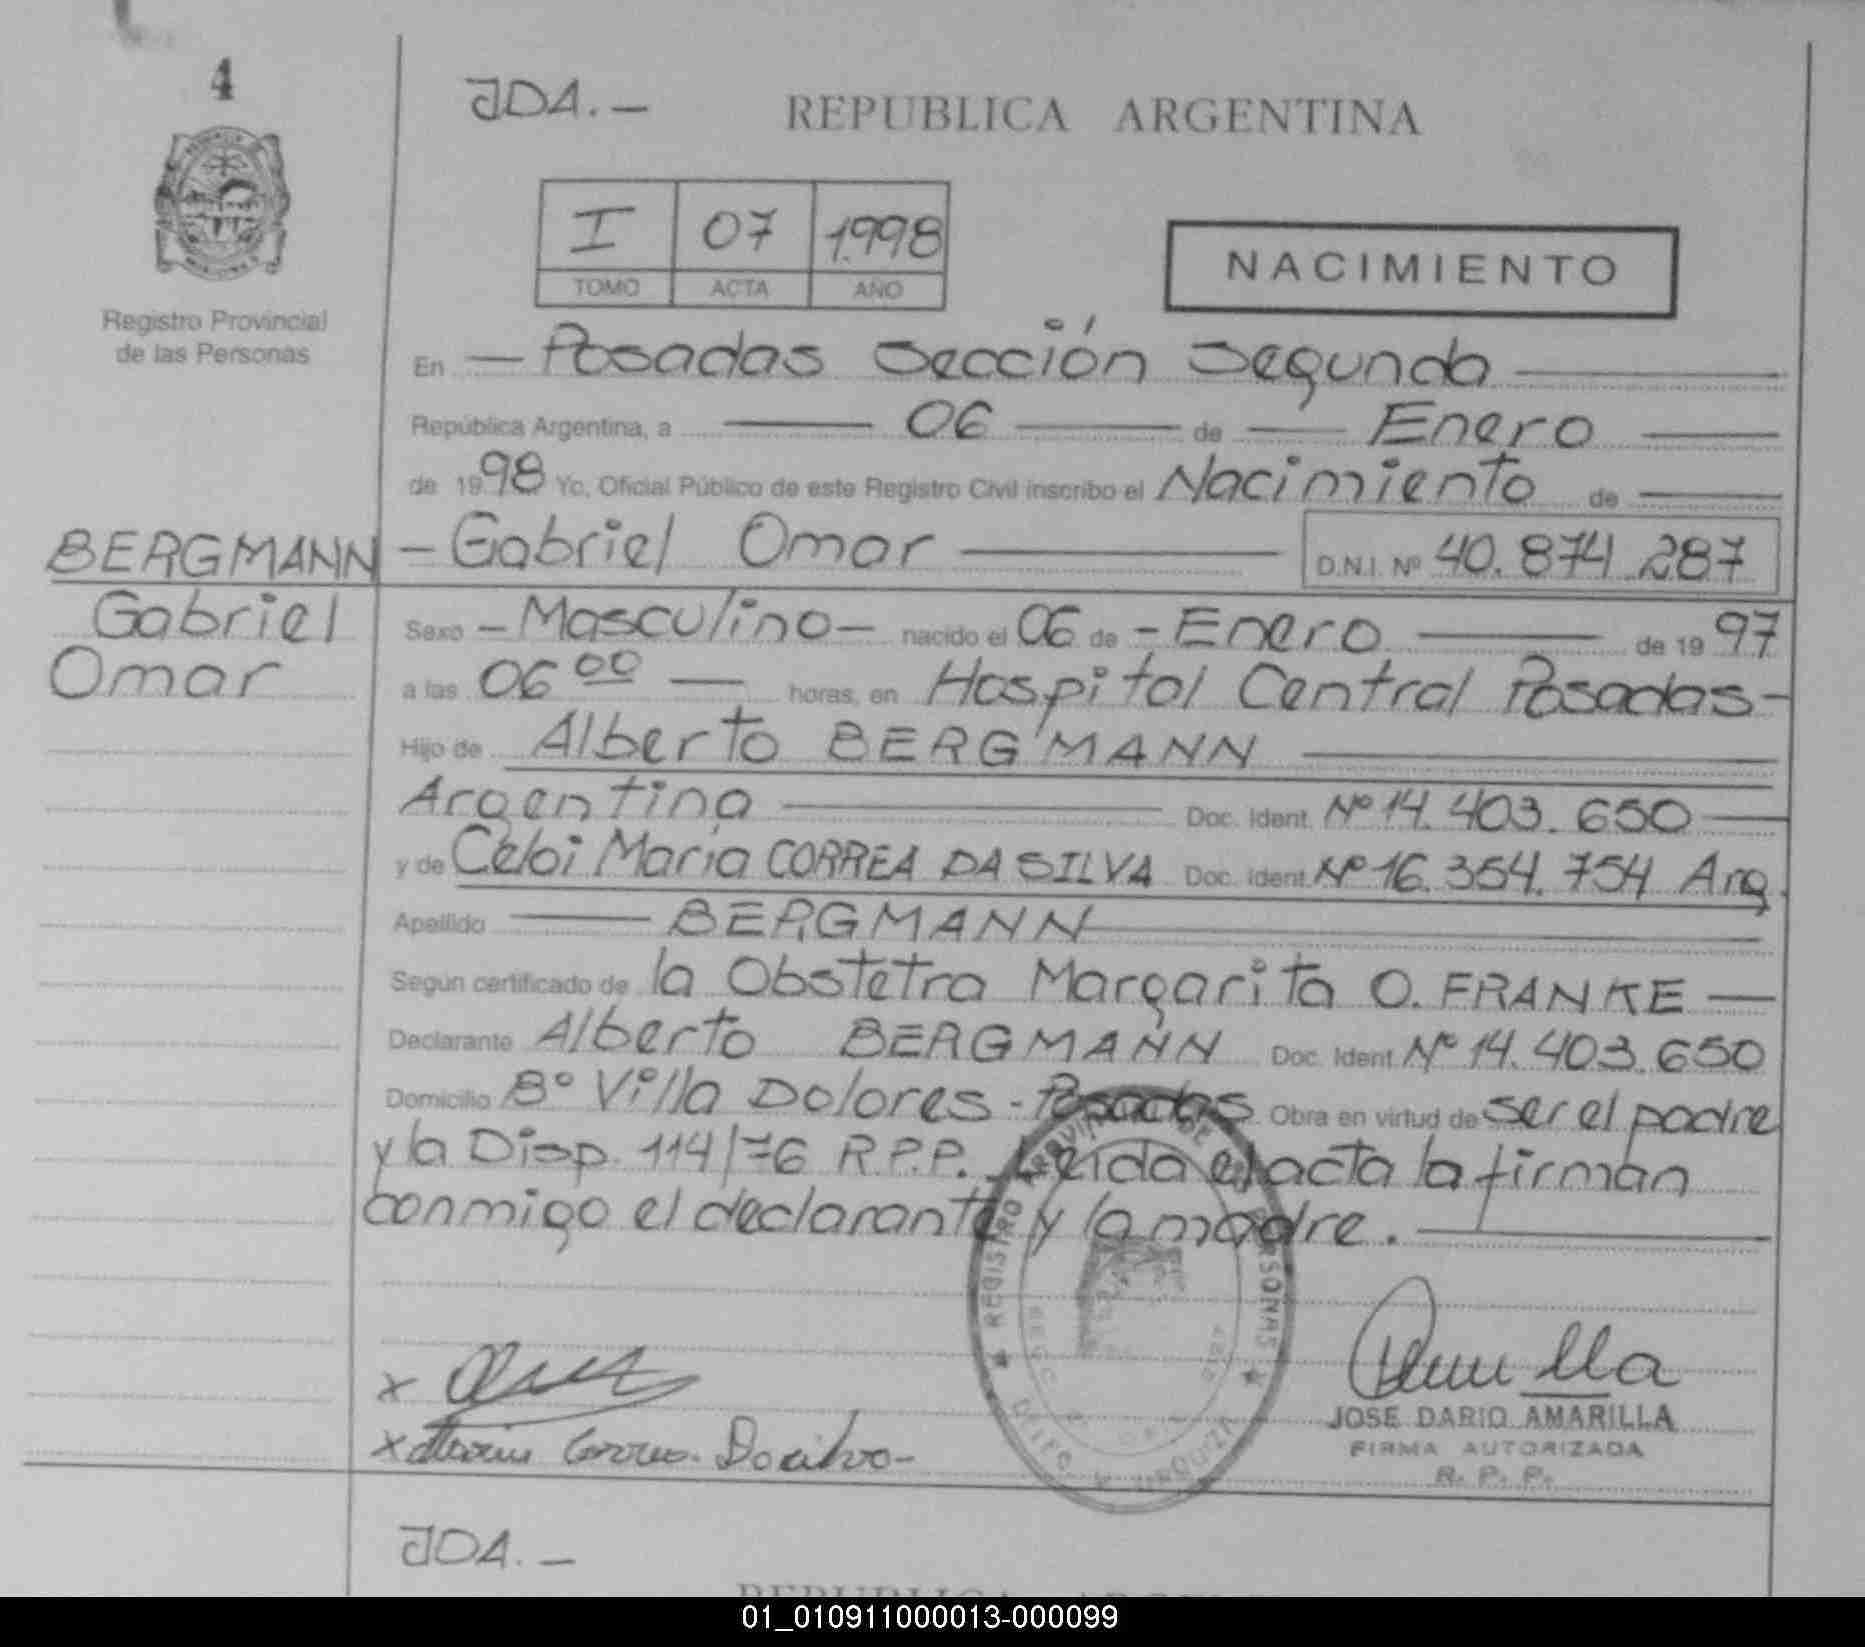 4
JDA. —
REPUBLICA ARGENTINA
I 07 1.998
TOMO ACTA AÑO
NACIMIENTO
Registro Provincial
de las Personas
En — Posadas Sección Segunda
República Argentina, a 06 de Enero
de 1998 Yo, Oficial Público de este Registro Civil inscribo el Nacimiento de
BERGMANN
Gabriel
Omar
— Gabriel Omar D.N.I. Nº 40.874.287
Sexo — Masculino — nacido el 06 de — Enero de 1997
a las 06 00 — horas, en Hospital Central Posadas —
Hijo de Alberto BERGMANN
Argentina Doc. Ident. Nº 14.403.650
y de Celoi Maria CORREA DA SILVA Doc. Ident. Nº 16.354.754 Arg.
Apellido BERGMANN
Según certificado de la Obstetra Margarita O. FRANKE —
Declarante Alberto BERGMANN Doc. Ident. Nº 14.403.650
Domicilio Bº Villa Dolores - Posadas Obra en virtud de ser el padre
y la Disp. 114/76 R.P.P. Leida el acta la firman
conmigo el declarante y la madre.
REGISTRO PROVINCIAL DE LAS PERSONAS
x
x Maria Correa Dasilva
JOSE DARIO AMARILLA
FIRMA AUTORIZADA
R. P. P.
JDA. —
REPUBLICA ARGENTINA
01_010911000013-000099